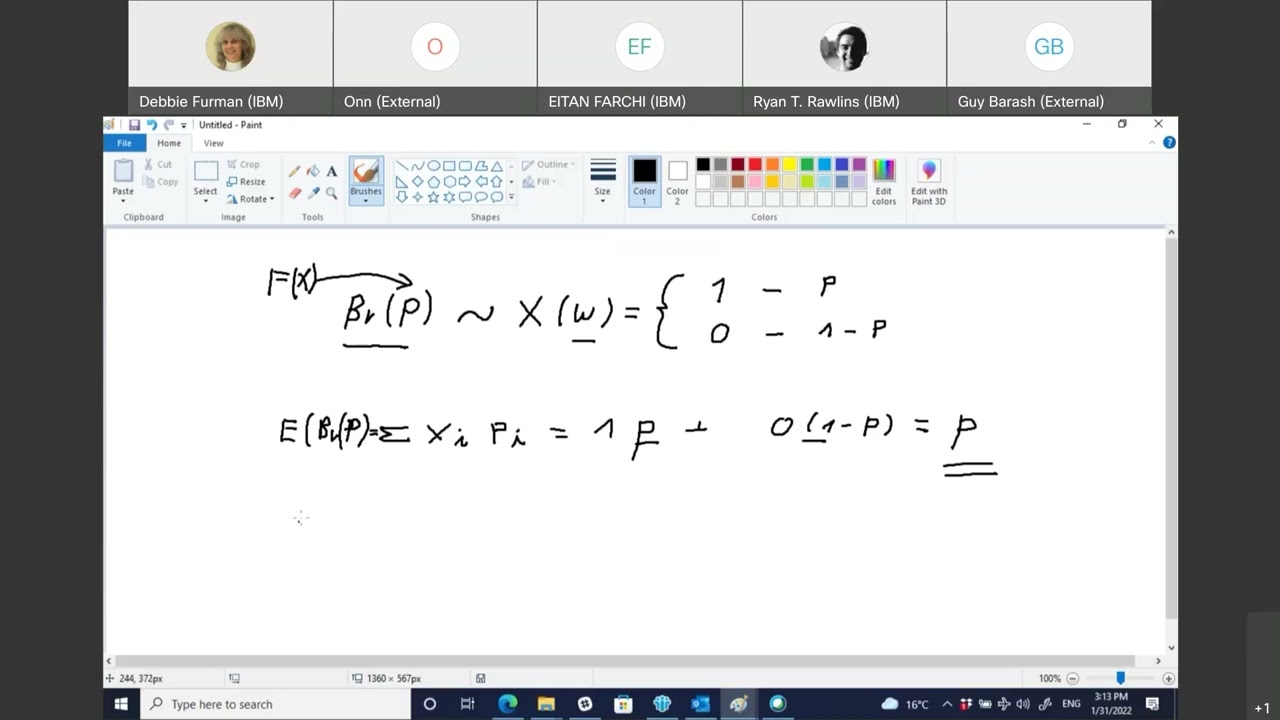 O EF GB
Debbie Furman (IBM) Onn (External) EITAN FARCHI (IBM) Ryan T. Rawlins (IBM) Guy Barash (External)
Untitled - Paint
File Home View
Paste Cut Copy Select Crop Resize Rotate A Brushes Outline Fill Size Color 1 Color 2 Edit colors Edit with Paint 3D
Clipboard Image Tools Shapes Colors
F(X)
Br(P) ~ X(w) = { 1 - P
0 - 1-P
E(Br(P)=Σ Xi Pi = 1 P + 0(1-P) = P
244, 372px 1360 × 567px 100%
Type here to search 16°C ENG 3:13 PM
1/31/2022
+1